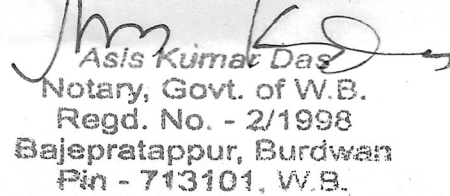 Asis Kumar Das
Notary, Govt. of W.B.
Regd. No. - 2/1998
Bajepratappur, Burdwan
Pin - 713101, W.B.